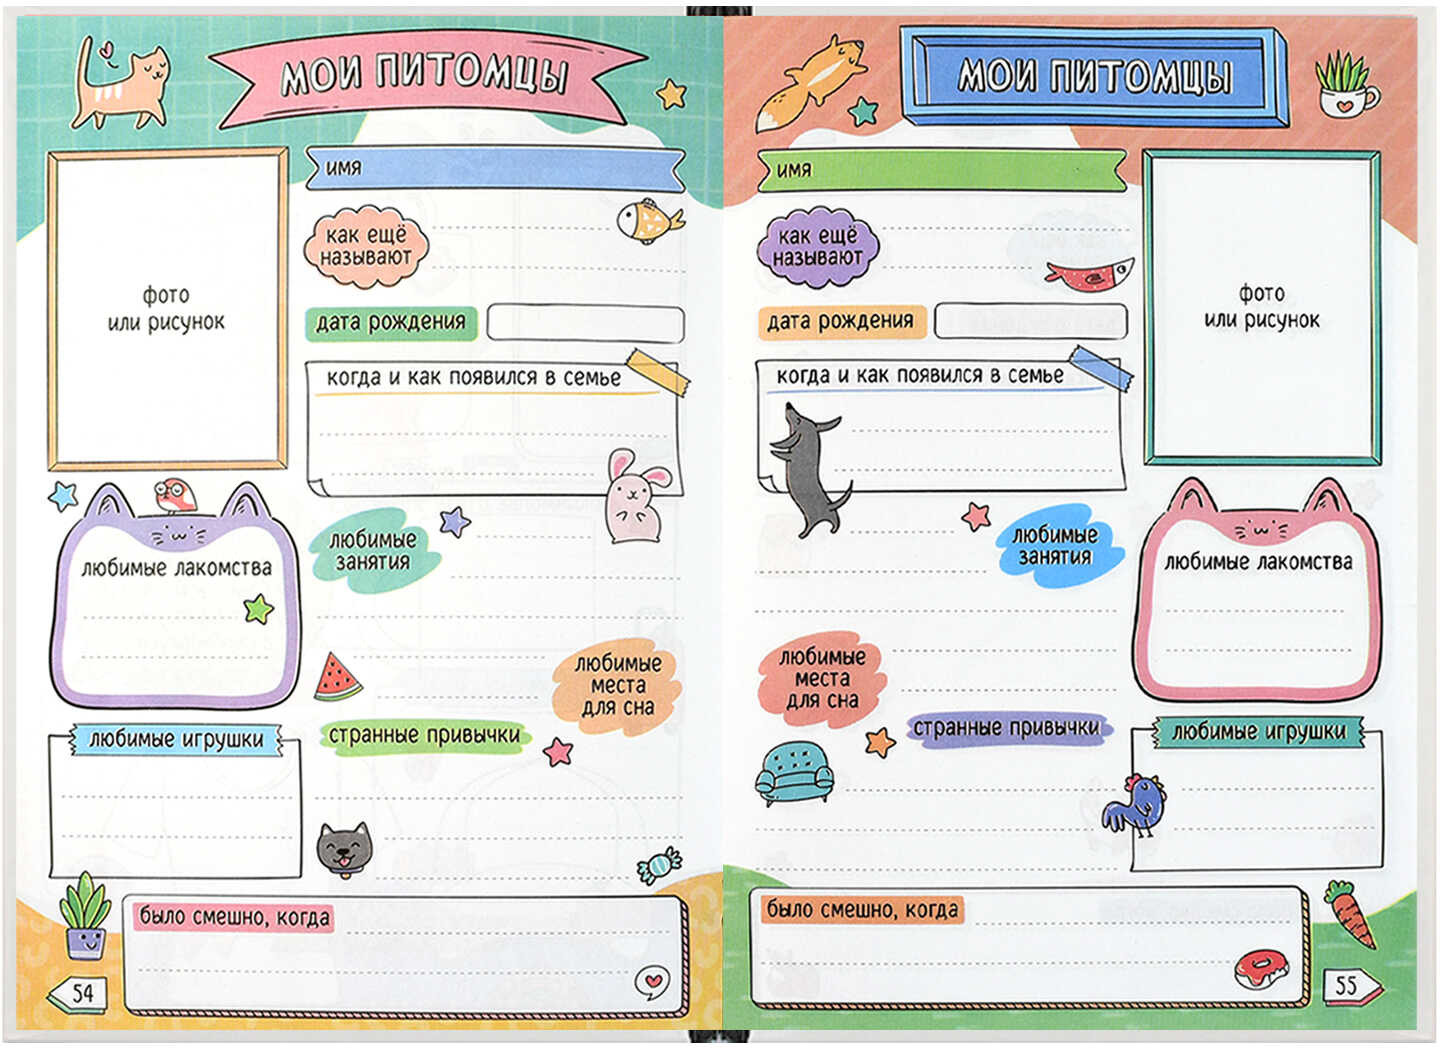 МОИ ПИТОМЦЫ
имя
как ещё
называют
фото
или рисунок
дата рождения
когда и как появился в семье
любимые
занятия
любимые лакомства
любимые
места
для сна
любимые игрушки
странные привычки
было смешно, когда
54
МОИ ПИТОМЦЫ
имя
как ещё
называют
фото
или рисунок
дата рождения
когда и как появился в семье
любимые
занятия
любимые лакомства
любимые
места
для сна
странные привычки
любимые игрушки
было смешно, когда
55